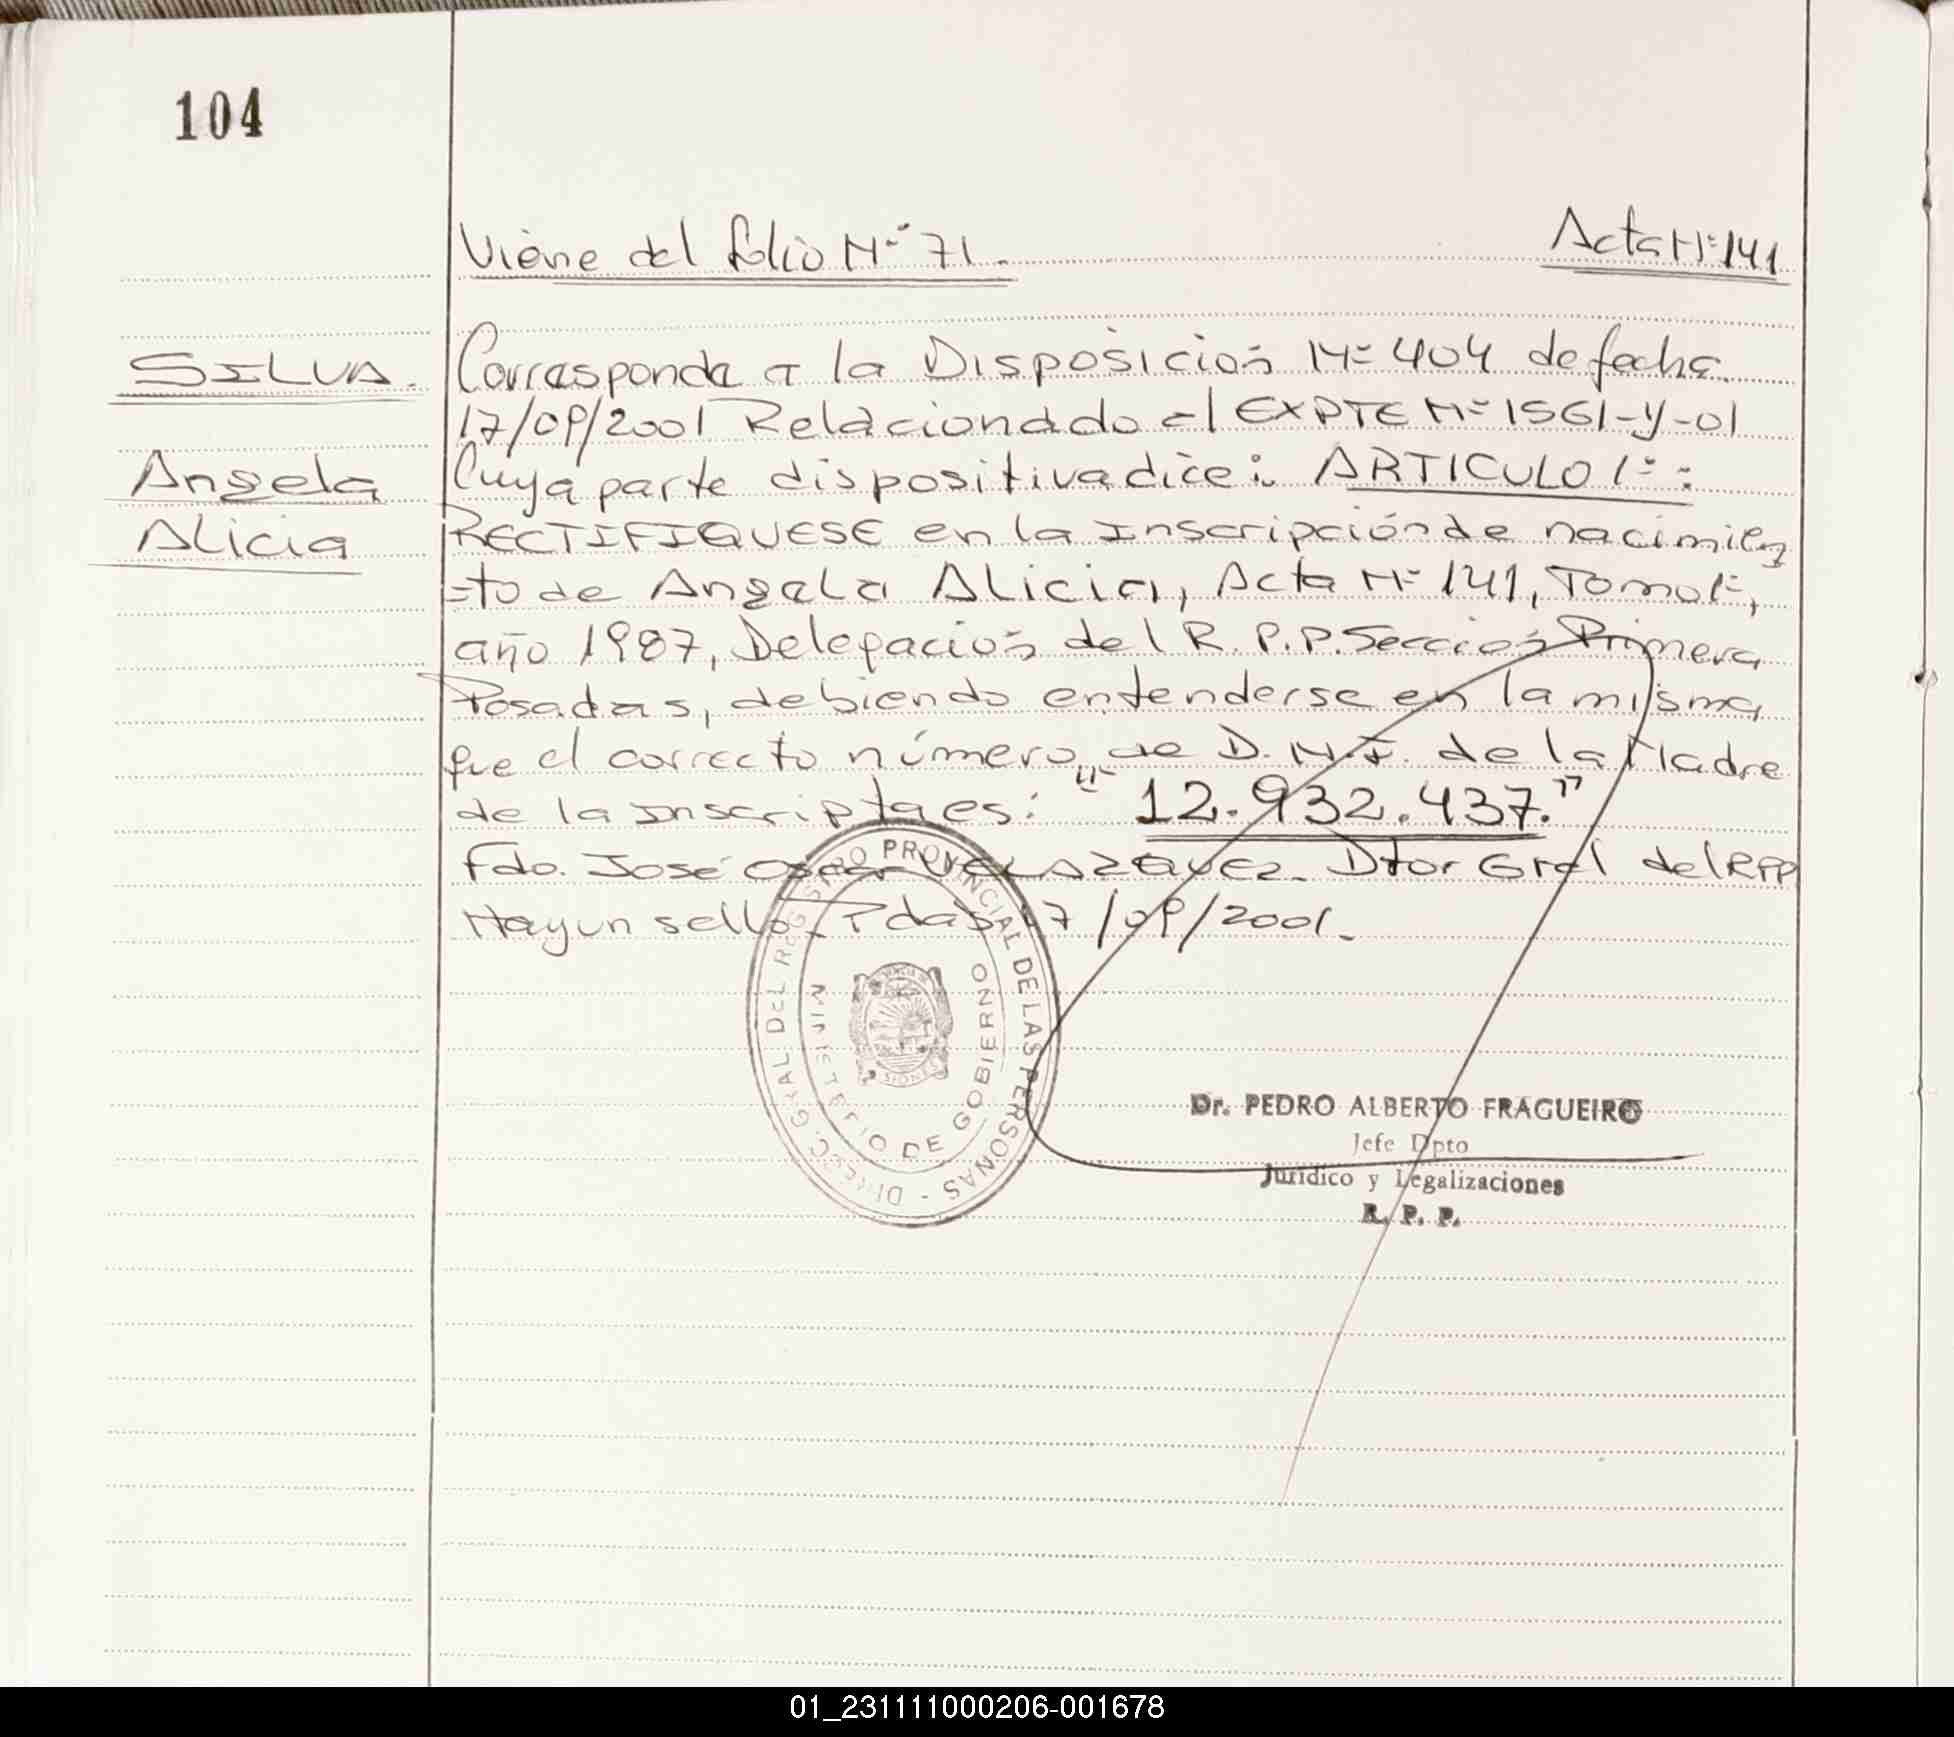 104
Viene del folio Nº 71.
Acta Nº 141
SILVA.
Angela
Alicia
Corresponde a la Disposición Nº 404 de fecha
17/09/2001 Relacionado al EXPTE Nº 1561-Y-01
Cuya parte dispositiva dice: ARTICULO 1º:
RECTIFIQUESE en la Inscripción de nacimien
=to de Angela Alicia, Acta Nº 141, Tomo 1º,
año 1987, Delegación del R.P.P. Sección Primera
Posadas, debiendo entenderse en la misma,
que el correcto número de D.N.I. de la Madre
de la Inscripta es: "12.932.437."
Fdo. José Oscar VELAZQUEZ. Dtor Gral del RPP
Hay un sello. Pdas 17/09/2001.
DIRECC. GRAL DEL REGISTRO PROVINCIAL DE LAS PERSONAS -
MINISTERIO DE GOBIERNO
Dr. PEDRO ALBERTO FRAGUEIRO
Jefe Dpto
Jurídico y Legalizaciones
R. P. P.
01_231111000206-001678